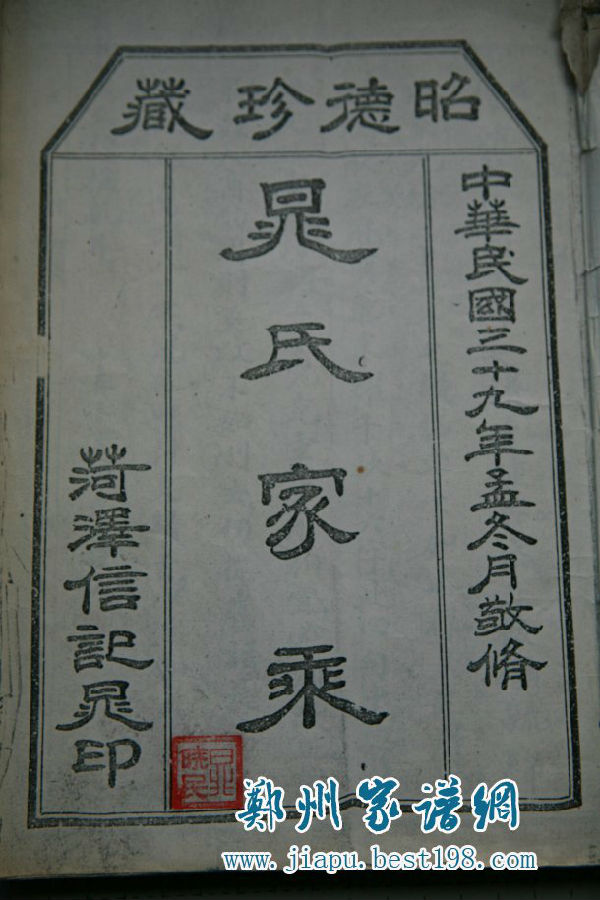 昭德珍藏
中華民國三十九年孟冬月敬脩
晁氏家乘
菏澤信記晁印
鄭州家谱網
www.jiapu.best198.com